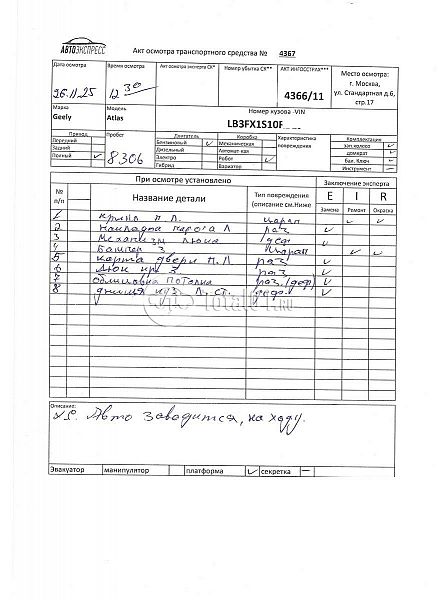 АВТОЭКСПРЕСС
Акт осмотра транспортного средства № 4367
Дата осмотра
Время осмотра
Акт осмотра эксперта СК*
Номер убытка СК**
АКТ ИНГОССТРАХ***
Место осмотра:
г. Москва,
ул. Стандартная д.6,
стр.17
26.11.25
12 30
4366/11
Марка
Модель
Номер кузова -VIN
Geely
Atlas
LB3FX1S10F
Привод
Пробег
Двигатель
Коробка
Характеристика повреждения
Комплектация
Передний
Бензиновый
Механическая
Зап.колесо
Задний
Дизельный
Автомат-кая
домкрат
Полный
8306
Электро
Робот
бал. Ключ
Гибрид
Вариатор
Инструмент
При осмотре установлено
Заключение эксперта
№ п/п
Название детали
Тип повреждения
(описание см.Ниже
E I R
Замена Ремонт Окраска
1 крыло П.Л. царап
2 накладка порога Л раз
3 Механизм люка деф
4 Бампер З царап
5 карта двери П.Л раз
6 раз
7 обшивка потолка раз/деф
8 деф
Total01.ru
Описание:
Авто заводится, на ходу.
Эвакуатор манипулятор платформа секретка